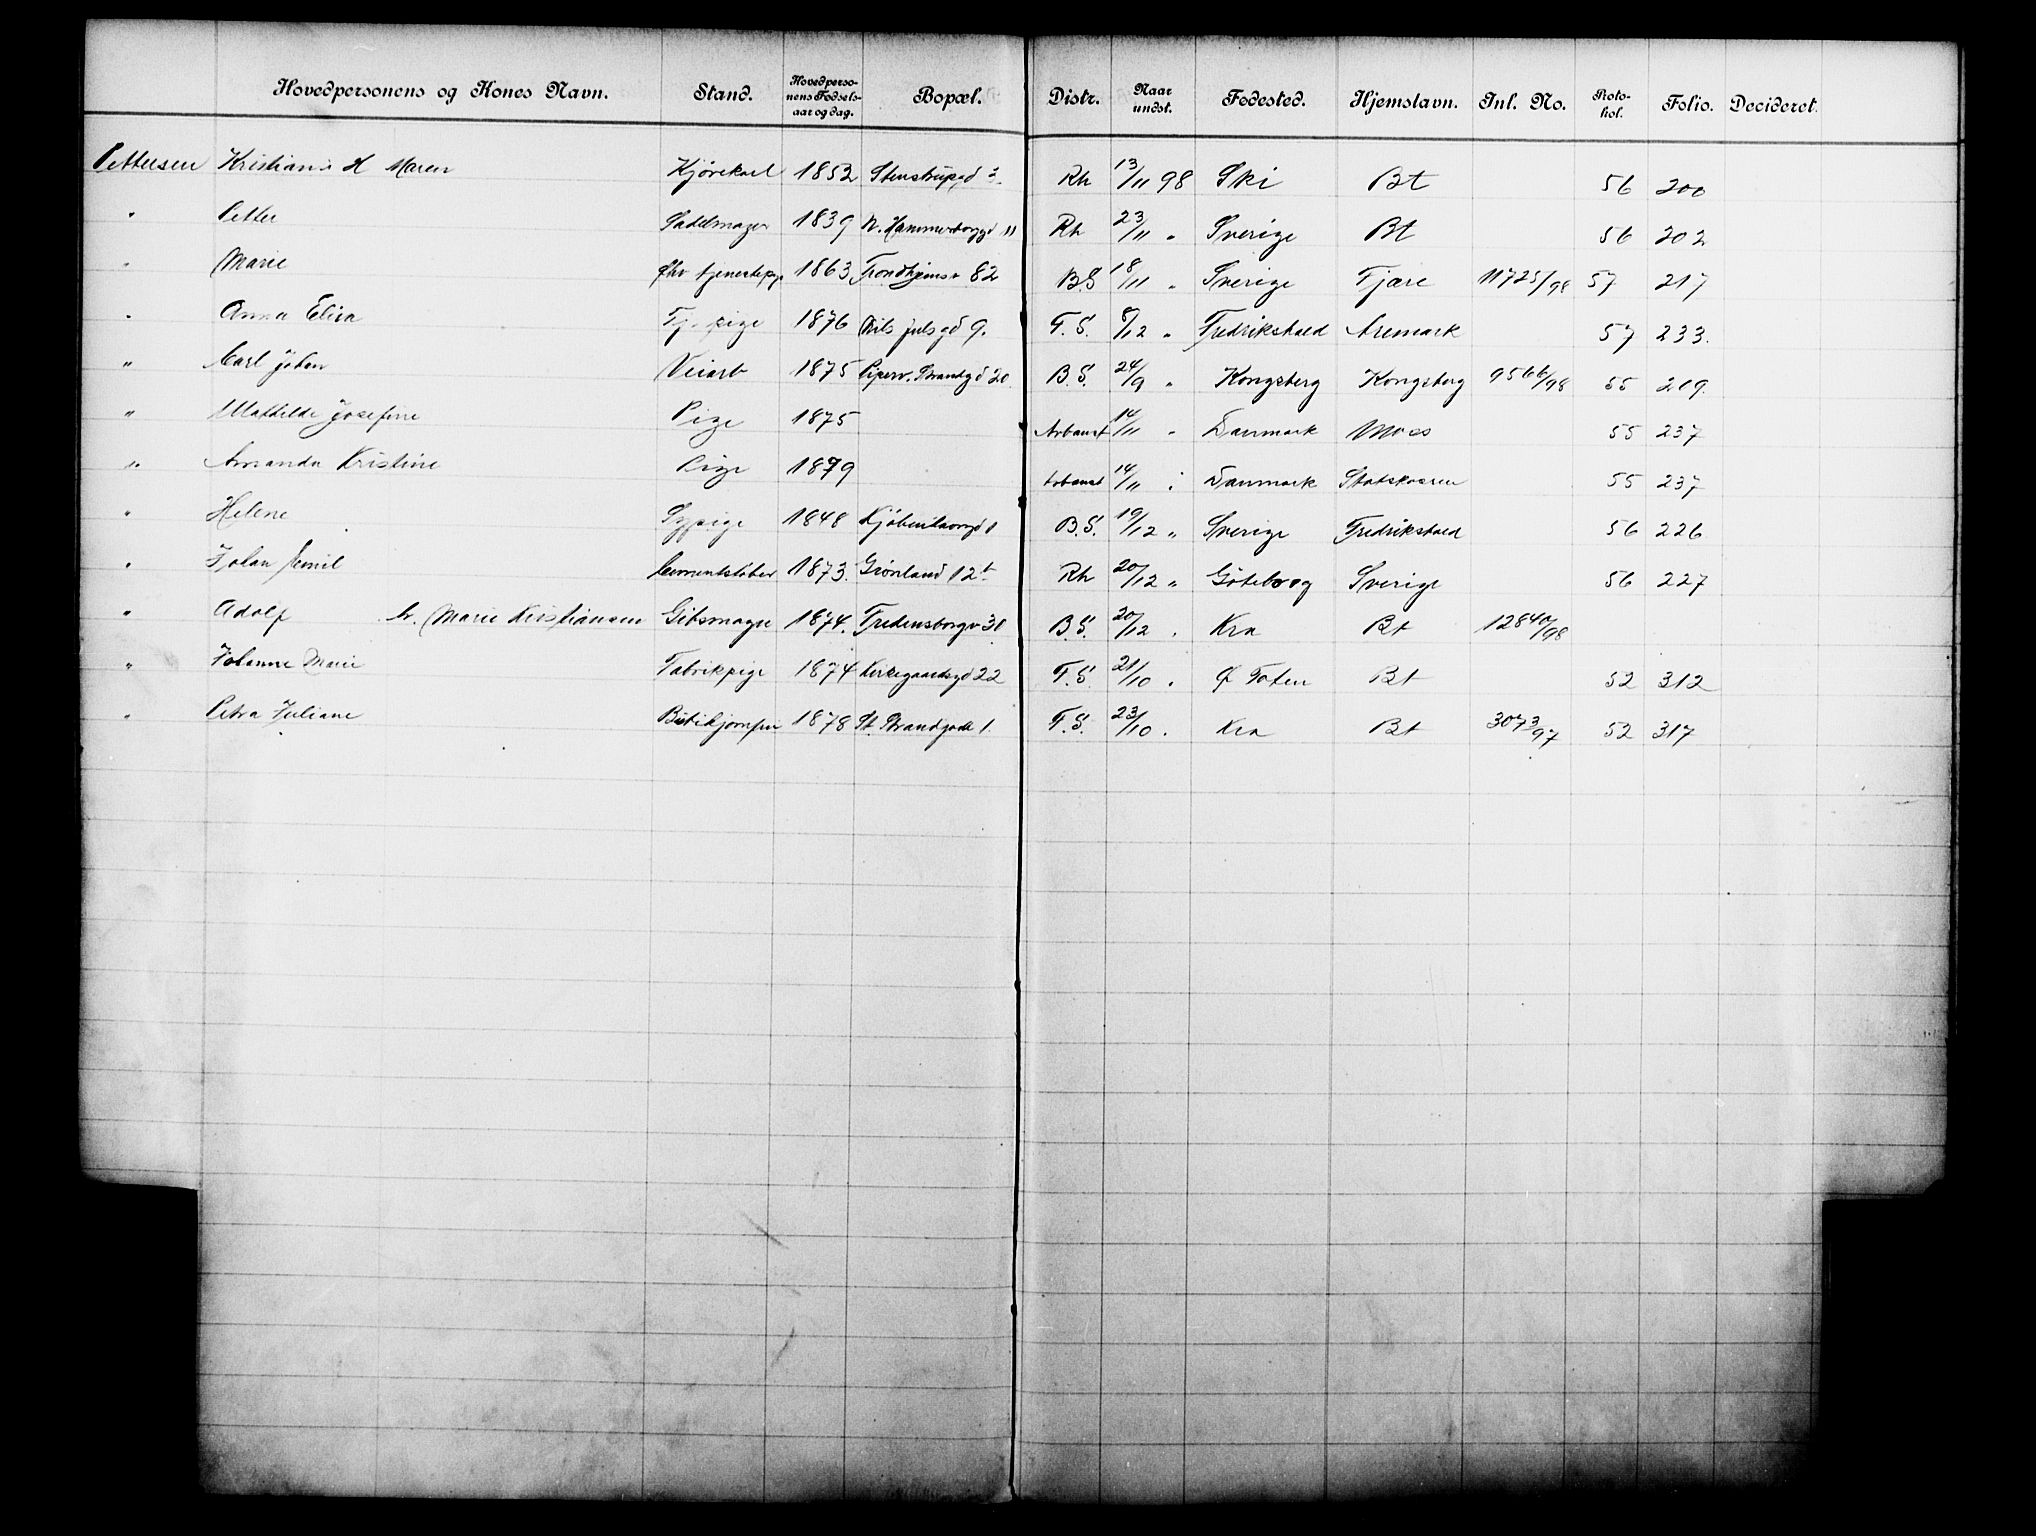 Hovedpersonens og Kones Navn. Stand. Hovedperso-nens Fødsels-aar og dag. Bopæl. Distr. Naar undst. Fødested. Hjemstavn. Inl. No. Proto-kol. Folio. Decideret.
Pettersen Kristian H Maren Kjørekarl 1852 Stenstrupgd 3 Rh 13/11 98 Ski Bt 56 200
" Petter Sadelmager 1839 N. Hammerborggd 11 Rh 23/11 " Sverige Bt 56 202
" Marie fhv tjenestepge 1863 Trondhjemsv 82 B.S 18/11 " Sverige Fjære 11725/98 57 217
" Anna Elisa Tj. pige 1876 Nils julsgd 9. F.S. 8/12 " Fredrikshald Aremark 57 233.
" Carl Johan Veiarb 1875 Piperv. Strandgd 20 B.S. 24/9 " Kongsberg Kongsberg 9566/98 55 219.
" Mathilde Josefine Pige 1875 Arbanst 14/11 " Danmark Moss 55 237
" Amanda Kristine Pige 1879 14/11 " Danmark Statskassen 55 237
" Helene Sypige 1848 Kjøbenhavngd 1 B.S. 19/12 " Sverige Fredrikshald 56 226
" Johan Emil Cementstøber 1873. Grønland 12 Rh 20/12 " Göteborg Sverige 56 227
" Adolf Marie Kristiansen Gibsmager 1874. Fredensborgv 31 B.S. 20/12 " Kra Bt 12840/98
" Johanne Marie Fabrikpige 1874 Kirkegaardsgd 22 F.S. 21/10 " Ø Toten Bt 52 312
" Petra Juliane Butikjomfru 1878 St. Strandgade 1. F.S. 23/10 " Kra Bt 3073/97 52 317